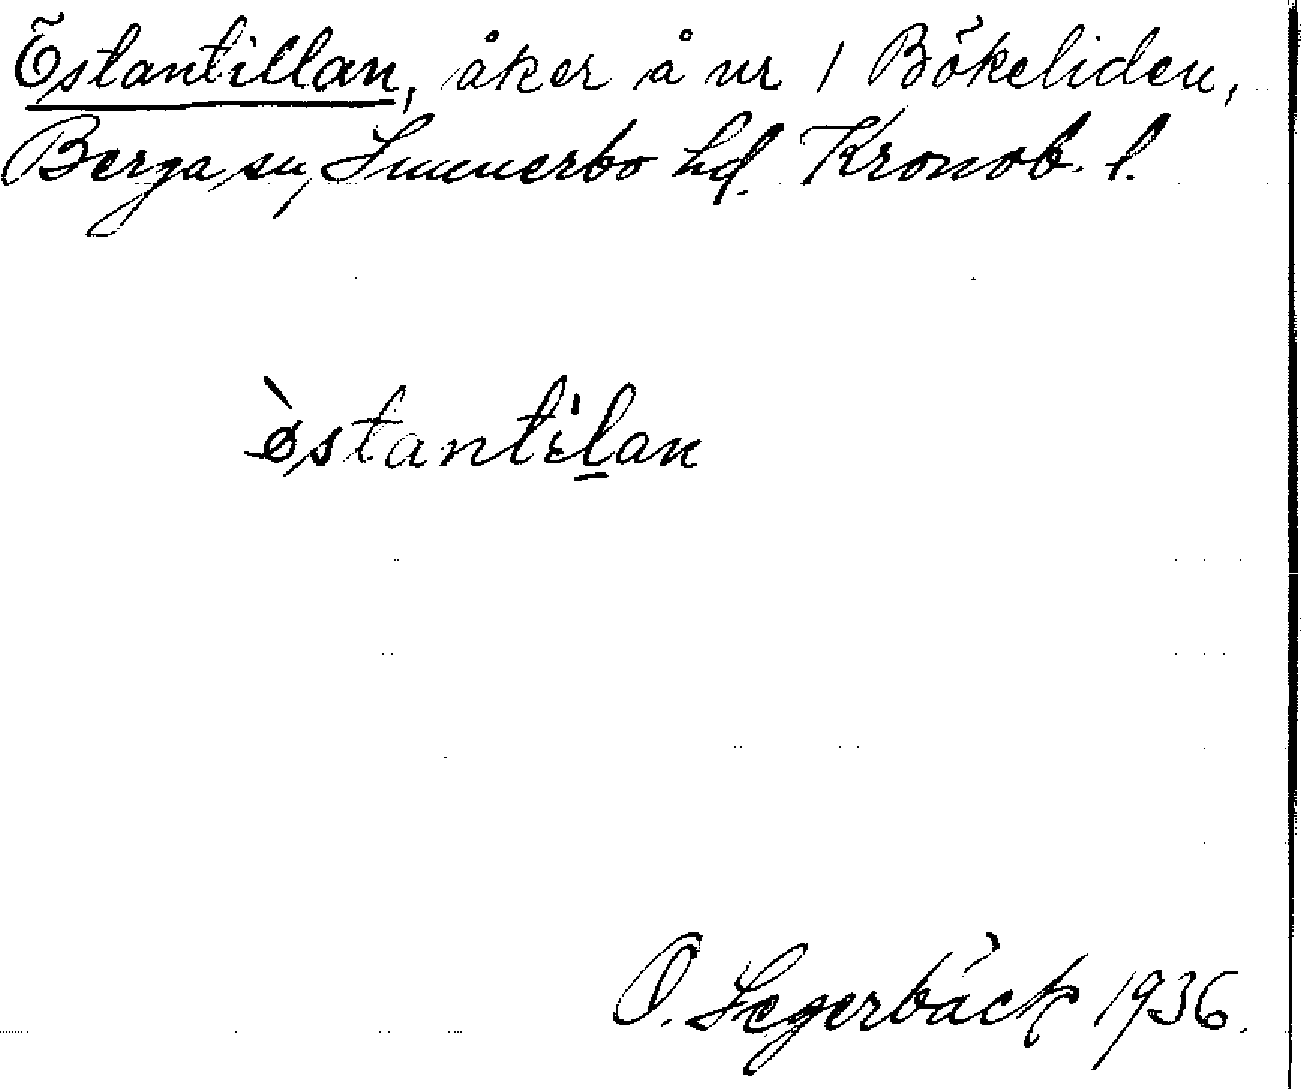 Östantillan, åker å nr 1 Bökeliden,
Berga sn, Sunnerbo hd. Kronob. l.
ø̀stantilan
O. Segerbäck 1936.